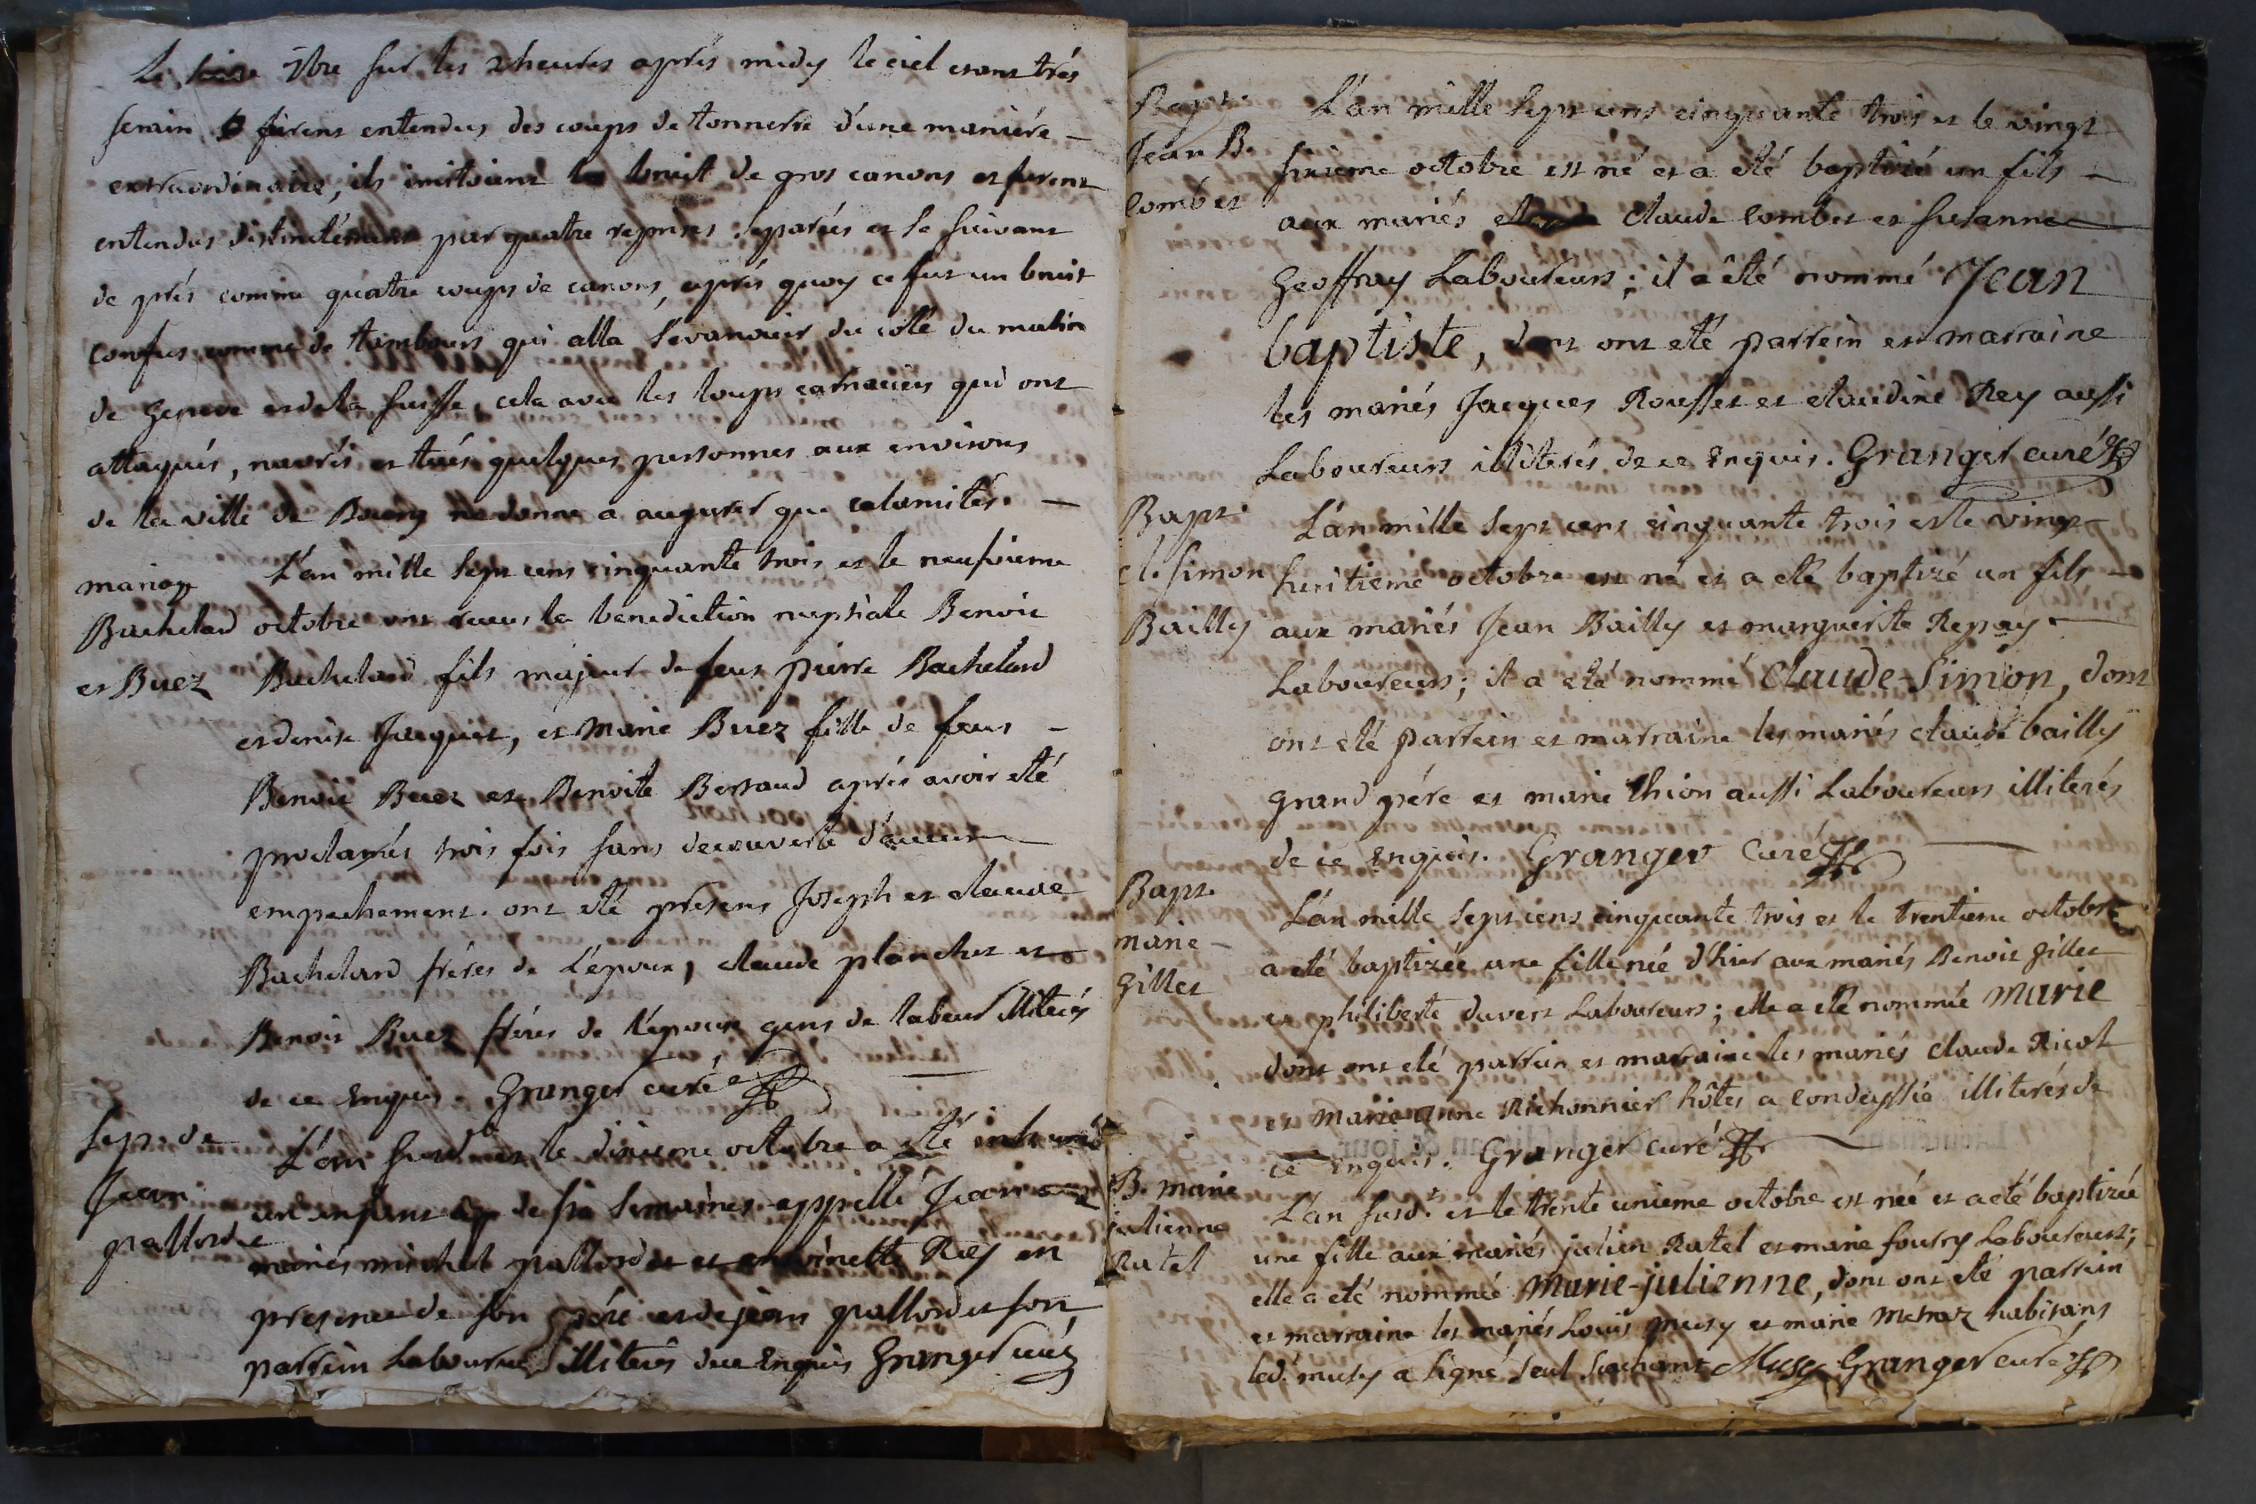 Le 7bre sur les 2 heures après midy le ciel etant très
serain furent entendus des coups de tonnerre d'une maniére
extraordinaire, ils imitoient le bruit de gros canons et furent
entendus distinctément par quatre reprises separées et se suivant
de prés comme quatre coups de canons, aprés quoy ce fut un bruit
confus comme de tambours qui alla s'evanouir du coté du matin
de Geneve et de la suisse, cela avec les loups carnaciers qui ont
attaqués, navrés et tués quelques personnes aux environs
de la ville de Bourg ne donne a augurer que calamités.
mariage
Bachelard
et Buez
L'an mille sept cens cinquante trois et le neufvieme
octobre ont receus la benediction nuptiale Benoit
Bachelard fils majeur de feus pierre Bachelard
et denise Jacquet, et Marie Buez fille de feus
Benoit Buez et Benoite Bertaud aprés avoir eté
proclamés trois fois sans decouverte d'aucun
empechement. ont eté presens Joseph et claude
Bachelard fréres de l'epoux, claude planchet et
Benoit Buez fréres de l'epouse gens de labeur illiterés
de ce Enquis. Granger curé
Sep. de
Jean
pallordet
L'an susd. et le dixieme octobre a eté inhumé
un enfant de six semaines appellé Jean aux
mariés michel pallordet et Rey en
presence de son pére et de jean pallordet son
parrein Laboureurs illiterés de ce Enquis Granger curé
Bapt.
Jean B.
Combet
L'an mille sept cens cinquante trois et le vingt
sixieme octobre est né et a eté baptizé un fils
aux mariés claude Combet et susanne
Geoffray Laboureurs; il a été nommé Jean
baptiste, dont ont eté parrein et marraine
les mariés Jacques Rousset et claudine Rey aussi
Laboureurs illiterés de ce Enquis. Granger curé
Bapt.
cl. simon
Bailly
L'an mille sept cens cinquante trois et le vingt
huitieme octobre est né et a eté baptizé un fils
aux mariés Jean Bailly et marguerite Repay
Laboureurs; il a eté nommé Claude-Simon, dont
ont eté parrein et marraine les mariés claude bailly
grand pére et marie thion aussi Laboureurs illiterés
de ce Enquis. Granger Curé
Bapt.
marie
gillet
L'an mille sept cens cinquante trois et le trentieme octobre
a eté baptizée une fille née d'hier aux mariés Benoit gillet
et philiberte duvert Laboureurs; elle a eté nommée Marie
dont ont eté parrein et marraine les mariés claude Ricol
et marieanne Richonnier hôtes a Condeyssia illiterés de
ce Enquis. Granger curé
B. marie
julienne
Ratel
L'an susd. et le trente unieme octobre est née et a eté baptizée
une fille aux mariés julien Ratel et marie foury Laboureurs;
elle a eté nommée Marie-julienne, dont ont eté parrein
et marraine les mariés Louis musy et marie metraz habitans
led. musy a signé seul sachant Musy Granger curé